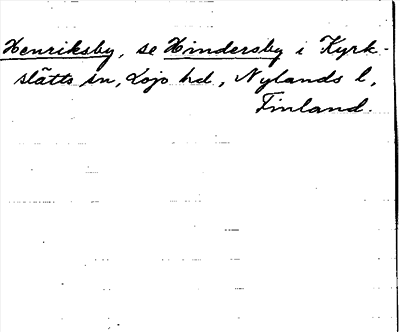 Henriksby, se Hindersby i Kyrk-
slätts sn, Lojo hd, Nylands l,
Finland.